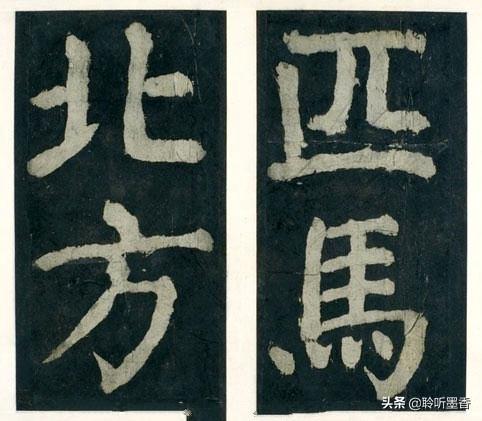 匹馬
北方
头条 @聆听墨香